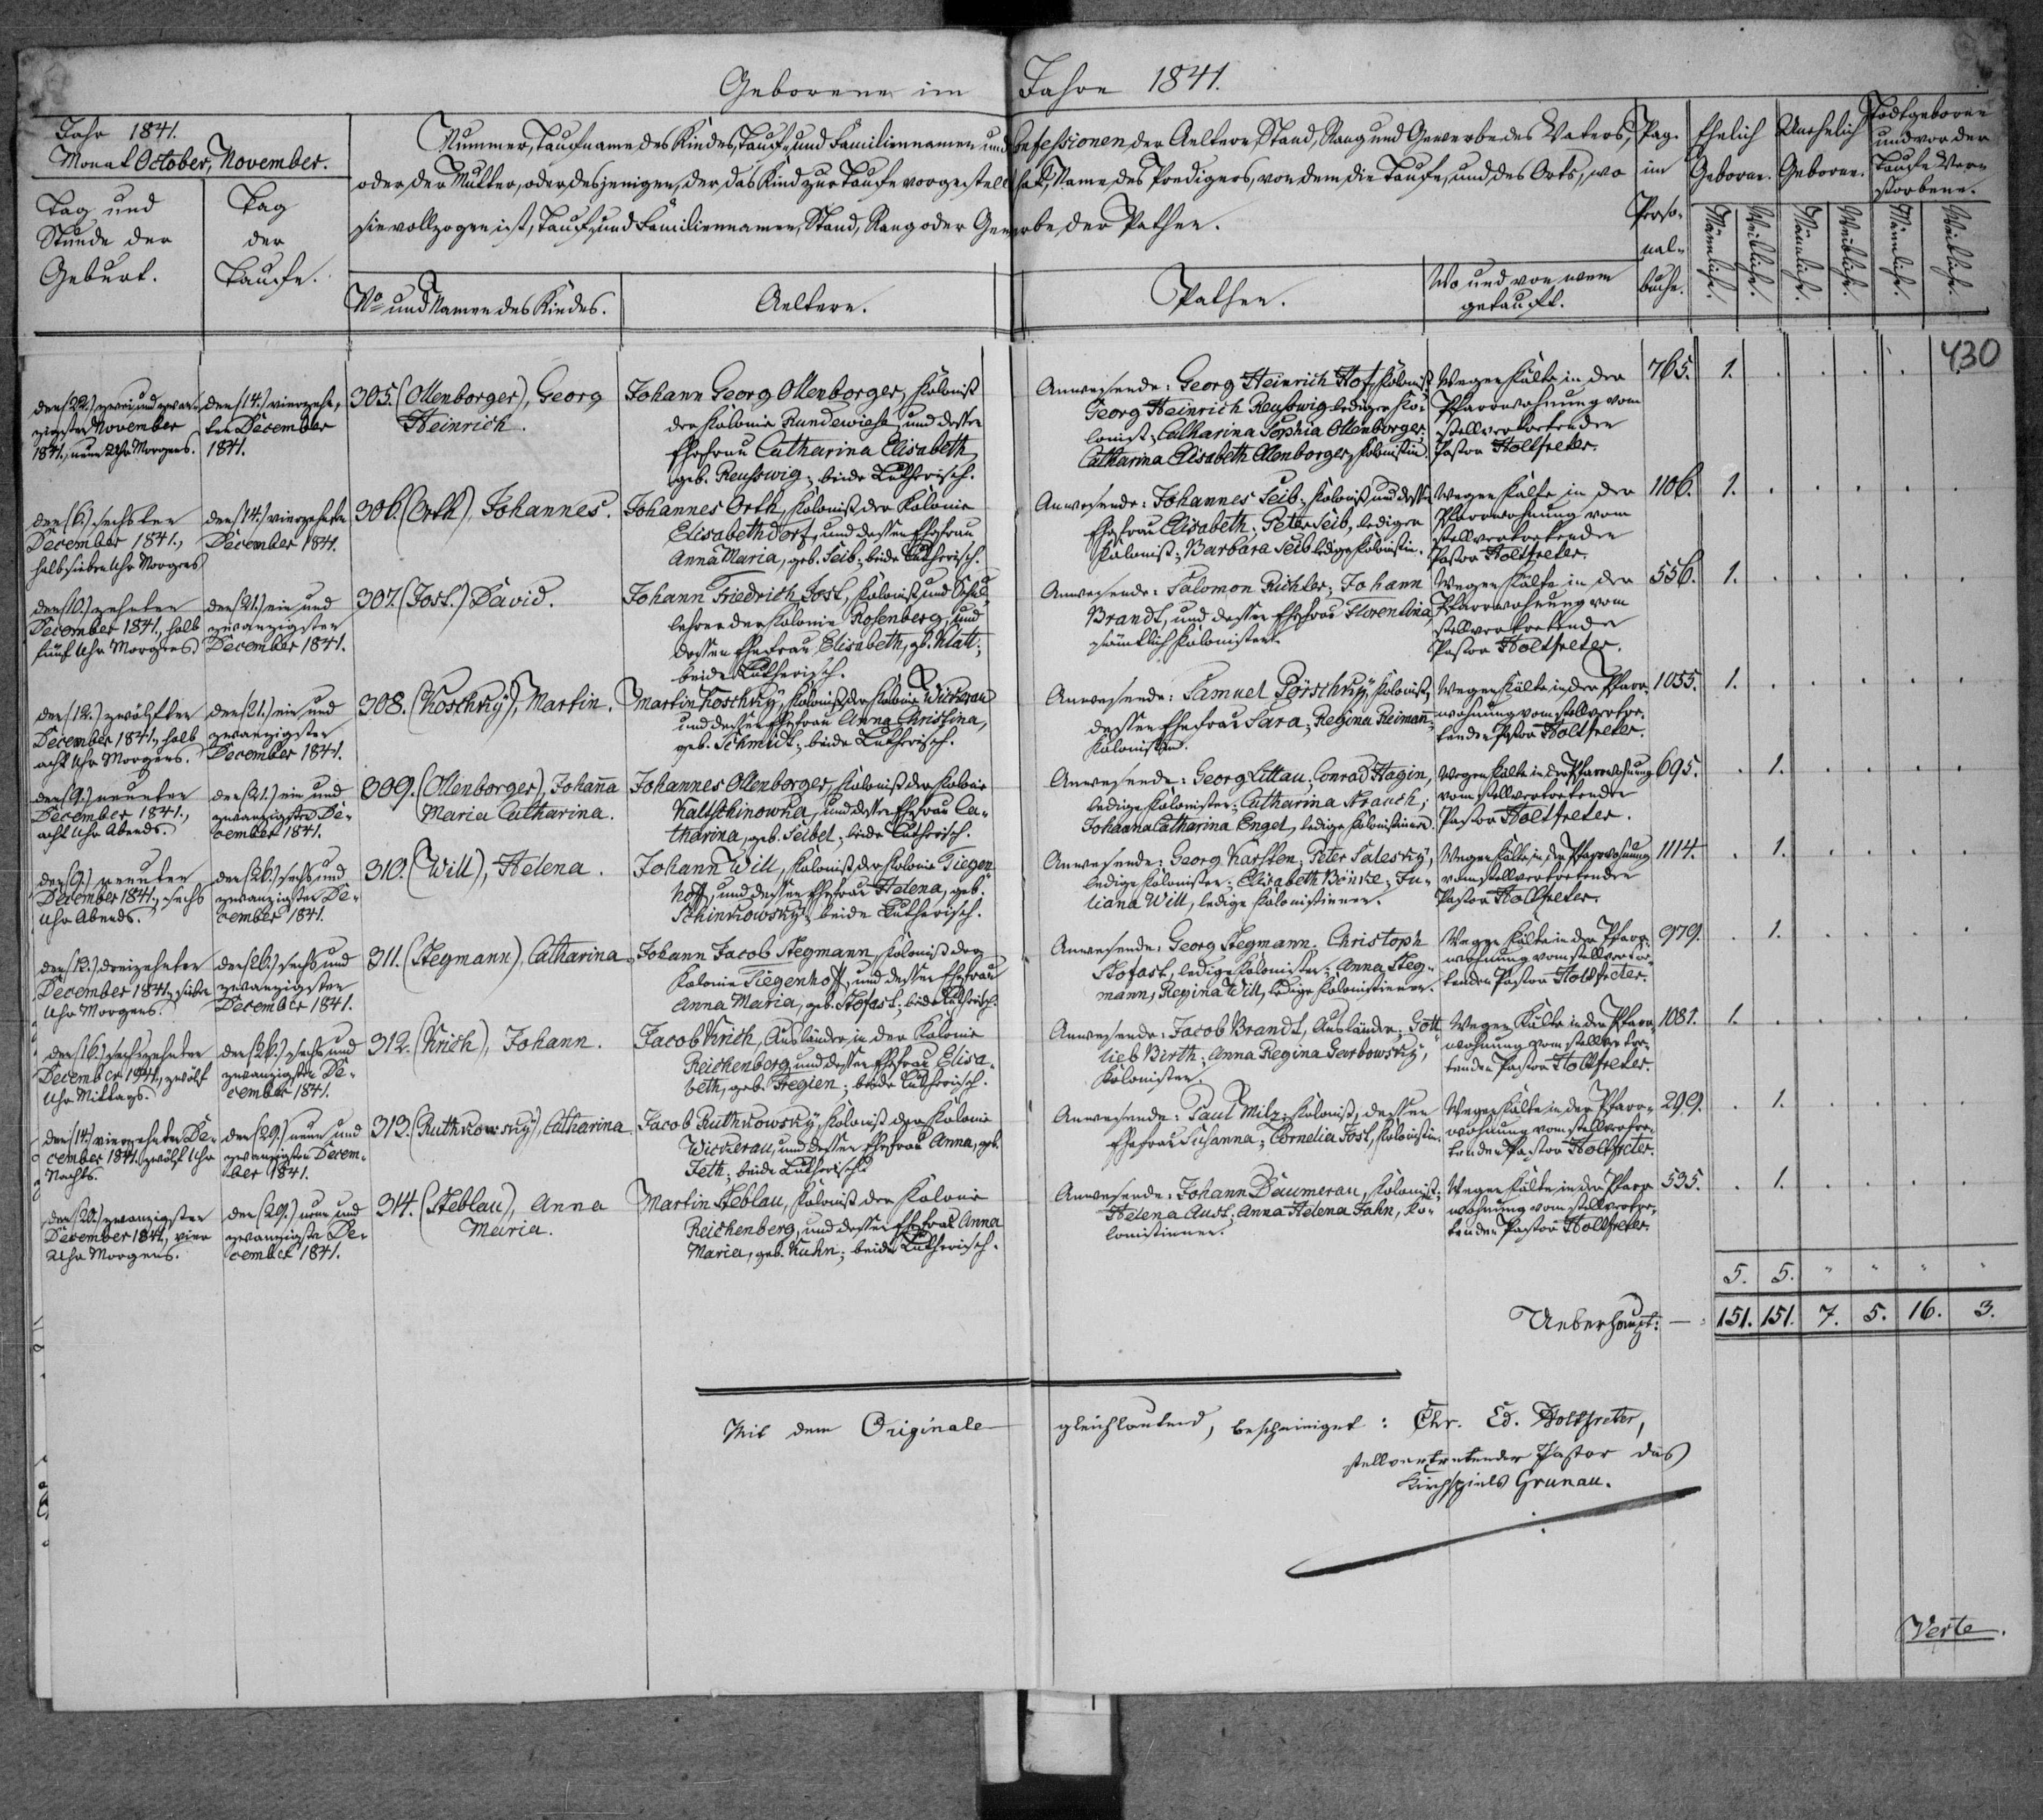 Geborene im Jahre 1841.
Jahr 1841.
Monat October, November.
Tag und
Stunde der
Geburt.
Tag
der
Taufe.
Nummer, Taufname des Kindes, Tauf- und Familiennamen und Confessionen der Aeltern, Stand, Rang und Gewerbe des Vaters,
oder der Mutter, oder desjenigen, der das Kind zur Taufe vorgestellt hat, Name des Predigers, von dem die Taufe, und des Orts, wo
sie vollzogen ist, Tauf- und Familiennamen, Stand, Rang oder Gewerbe der Pathen.
No und Namen des Kindes.
Aeltern.
Pathen.
Wo und von wem
getauft.
Pag.
im
Perso-
nal-
buche.
Ehelich
Geborene.
Unehelich
Geborene.
Todtgeborene
und vor der
Taufe Ver-
storbene.
Männliche.
Weibliche.
Männliche.
Weibliche.
Männliche.
Weibliche.
430
den (22.) zwei und zwan-
zigsten November
1841., neun Uhr Morgens.
den (14.) vierzehn-
ten December
1841.
305. (Ollenborger), Georg
Heinrich.
Johann Georg Ollenborger, Kolonist
der Kolonie Rundewiese, und dessen
Ehefrau Catharina Elisabeth,
geb. Reusswig; beide Lutherisch.
Anwesende: Georg Heinrich Hof, Kolonist;
Georg Heinrich Reusswig lediger Ko-
lonist; Catharina Sophia Ollenborger;
Catharina Elisabeth Ollenborger, Kolonistin.
Wegen Kälte in der
Pfarrwohnung vom
stellvertretenden
Pastor Holtfreter.
765. 1.
den (6.) sechsten
December 1841.,
halb sieben Uhr Morgens
den (14.) vierzehnten
December 1841.
306. (Orth), Johannes.
Johannes Orth, Kolonist der Kolonie
Elisabethdorf, und dessen Ehefrau
Anna Maria, geb. Seib; beide Lutherisch.
Anwesende: Johannes Seib, Kolonist und dessen
Ehefrau Elisabeth; Peter Seib, lediger
Kolonist; Barbara Seib ledige Kolonistin.
Wegen Kälte in der
Pfarrwohnung vom
stellvertretenden
Pastor Holtfreter.
1106. 1.
den (10.) zehnten
December 1841., halb
fünf Uhr Morgens
den (21.) ein und
zwanzigsten
December 1841.
307. (Jost.) David.
Johann Friedrich Jost, Kolonist und Schul-
lehrer der Kolonie Rosenberg, und
dessen Ehefrau Elisabeth, gb. Klatt;
beide Lutherisch.
Anwesende: Salomon Richter; Johann
Brandt, und dessen Ehefrau Florentina,
sämtlich Kolonisten.
Wegen Kälte in der
Pfarrwohnung vom
stellvertretenden
Pastor Holtfreter.
556. 1.
den (12.) zwölften
December 1841., halb
acht Uhr Morgens.
den (21.) ein und
zwanzigsten
December 1841.
308. (Koschky), Martin.
Martin Koschky, Kolonist der Kolonie Wickerau
und dessen Ehefrau Anna Christina,
geb. Schmidt; beide Lutherisch.
Anwesende: Samuel Pörschky, Kolonist,
dessen Ehefrau Sara; Regina Reimann,
Kolonisten.
Wegen Kälte in der Pfarr-
wohnung vom stellvertre-
tenden Pastor Holtfreter.
1055. 1.
den (9.) neunten
December 1841.,
acht Uhr Abends.
den (21.) ein und
zwanzigsten De-
cember 1841.
309. (Ollenborger), Johanna
Maria Catharina.
Johannes Ollenborger, Kolonist der Kolonie
Kaltschinowka, und dessen Ehefrau Ca-
tharina, geb. Seibel; beide Lutherisch.
Anwesende: Georg Littau; Conrad Hagin,
ledige Kolonisten; Catharina Strauch;
Johanna Catharina Engel, ledige Kolonistinnen.
Wegen Kälte in der Pfarrwohnung
vom stellvertretenden
Pastor Holtfreter.
695. 1.
den (9.) neunten
December 1841., sechs
Uhr Abends.
den (26.) sechs und
zwanzigsten De-
cember 1841.
310. (Will), Helena.
Johann Will, Kolonist der Kolonie Tiegen-
hoff, und dessen Ehefrau Helena, geb.
Schinkowsky; beide Lutherisch.
Anwesende: Georg Karsten; Peter Salesky,
ledige Kolonisten; Elisabeth Bönke; Ju-
liana Will, ledige Kolonistinnen.
Wegen Kälte in der Pfarrwohnung
vom stellvertretenden
Pastor Holtfreter.
1114. 1.
den (13.) dreizehnten
December 1841., sieben
Uhr Morgens.
den (26.) sechs und
zwanzigsten
December 1841.
311. (Stegmann), Catharina.
Johann Jacob Stegmann, Kolonist der
Kolonie Tiegenhoff, und dessen Ehefrau
Anna Maria, geb. Stofast; beide Lutherisch.
Anwesende: Georg Stegmann. Christoph
Stofast, ledige Kolonisten; Anna Steg-
mann; Regina Will, ledige Kolonistinnen.
Wegen Kälte in der Pfarr-
wohnung vom stellvertre-
tenden Pastor Holtfreter.
979. 1.
den (16.) sechszehnten
December 1841., zwölf
Uhr Mittags.
den (26.) sechs und
zwanzigsten De-
cember 1841.
312. (Krich), Johann.
Jacob Krich, Ausländer in der Kolonie
Reichenberg, und dessen Ehefrau Elisa-
beth, geb. Tregien; beide Lutherisch.
Anwesende: Jacob Brandt, Ausländer; Gott-
lieb Birth; Anna Regina Garbowsky,
Kolonisten.
Wegen Kälte in der Pfarr-
wohnung vom stellvertre-
tenden Pastor Holtfreter.
1081. 1.
den (14.) vierzehnten De-
cember 1841. zwölf Uhr
Nachts.
den (29.) neun und
zwanzigsten Decem-
ber 1841.
313. (Ruthkowsky), Catharina
Jacob Ruthkowsky, Kolonist der Kolonie
Wickerau, und dessen Ehefrau Anna, geb.
Jeth; beide Lutherisch.
Anwesende: Paul Milz, Kolonist, dessen
Ehefrau Susanna; Cornelia Jost, Kolonistin.
Wegen Kälte in der Pfarr-
wohnung vom stellvertre-
tenden Pastor Holtfreter.
299. 1.
den (20.) zwanzigsten
December 1841., vier
Uhr Morgens.
den (29.) neun und
zwanzigsten De-
cember 1841.
314. (Steblau), Anna
Maria.
Martin Steblau, Kolonist der Kolonie
Reichenberg, und dessen Ehefrau Anna
Maria, geb. Kuhn; beide Lutherisch.
Anwesende: Johann Daumerau, Kolonist;
Helena Aust; Anna Helena Jahn, Ko-
lonistinnen.
Wegen Kälte in der Pfarr-
wohnung vom stellvertre-
tenden Pastor Holtfreter.
535. 1.
5. 5. " " " "
Ueberhaupt: — 151. 151. 7. 5. 16. 3.
Mit dem Originale gleichlautend, bescheiniget: Chr. Ed. Holtfreter,
stellvertretender Pastor des
Kirchspiels Grunau.
Verte.